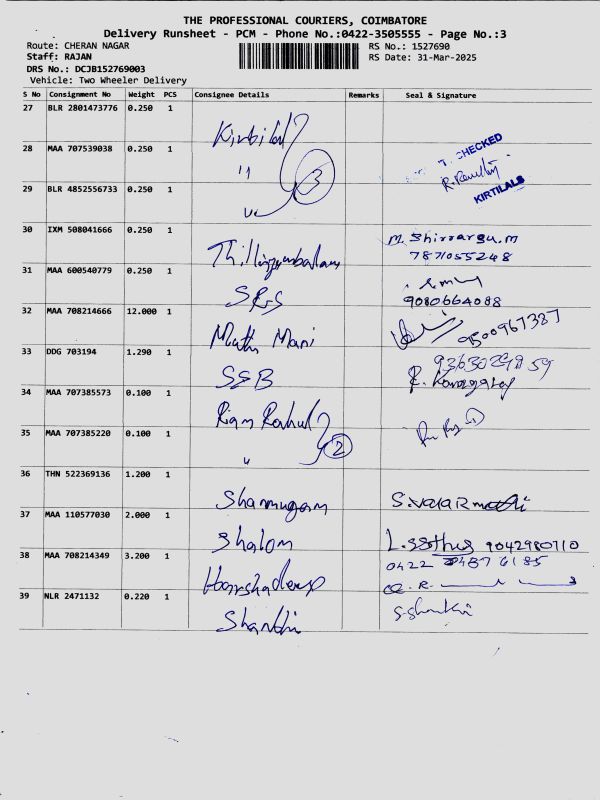 THE PROFESSIONAL COURIERS, COIMBATORE
Delivery Runsheet - PCM - Phone No.:0422-3505555 - Page No.:3
Route: CHERAN NAGAR
RS No.: 1527690
Staff: RAJAN
RS Date: 31-Mar-2025
DRS No.: DCJB152769003
Vehicle: Two Wheeler Delivery
S No Consignment No Weight PCS Consignee Details Remarks Seal & Signature
27 BLR 2801473776 0.250 1
28 MAA 707539038 0.250 1 " CHECKED
29 BLR 4852556733 0.250 1 3 KIRTILALS
30 IXM 508041666 0.250 1 M. Shivargu.M
7871055248
31 MAA 600540779 0.250 1 SRGS
9080664088
32 MAA 708214666 12.000 1 Muthu Mani 9500967387
33 DDG 703194 1.290 1 SSB
34 MAA 707385573 0.100 1 Rahul
35 MAA 707385220 0.100 1 " 2
36 THN 522369136 1.200 1 Shanmugam
37 MAA 110577030 2.000 1 Shalom 9042980710
38 MAA 708214349 3.200 1 0422
39 NLR 2471132 0.220 1 Shanthi